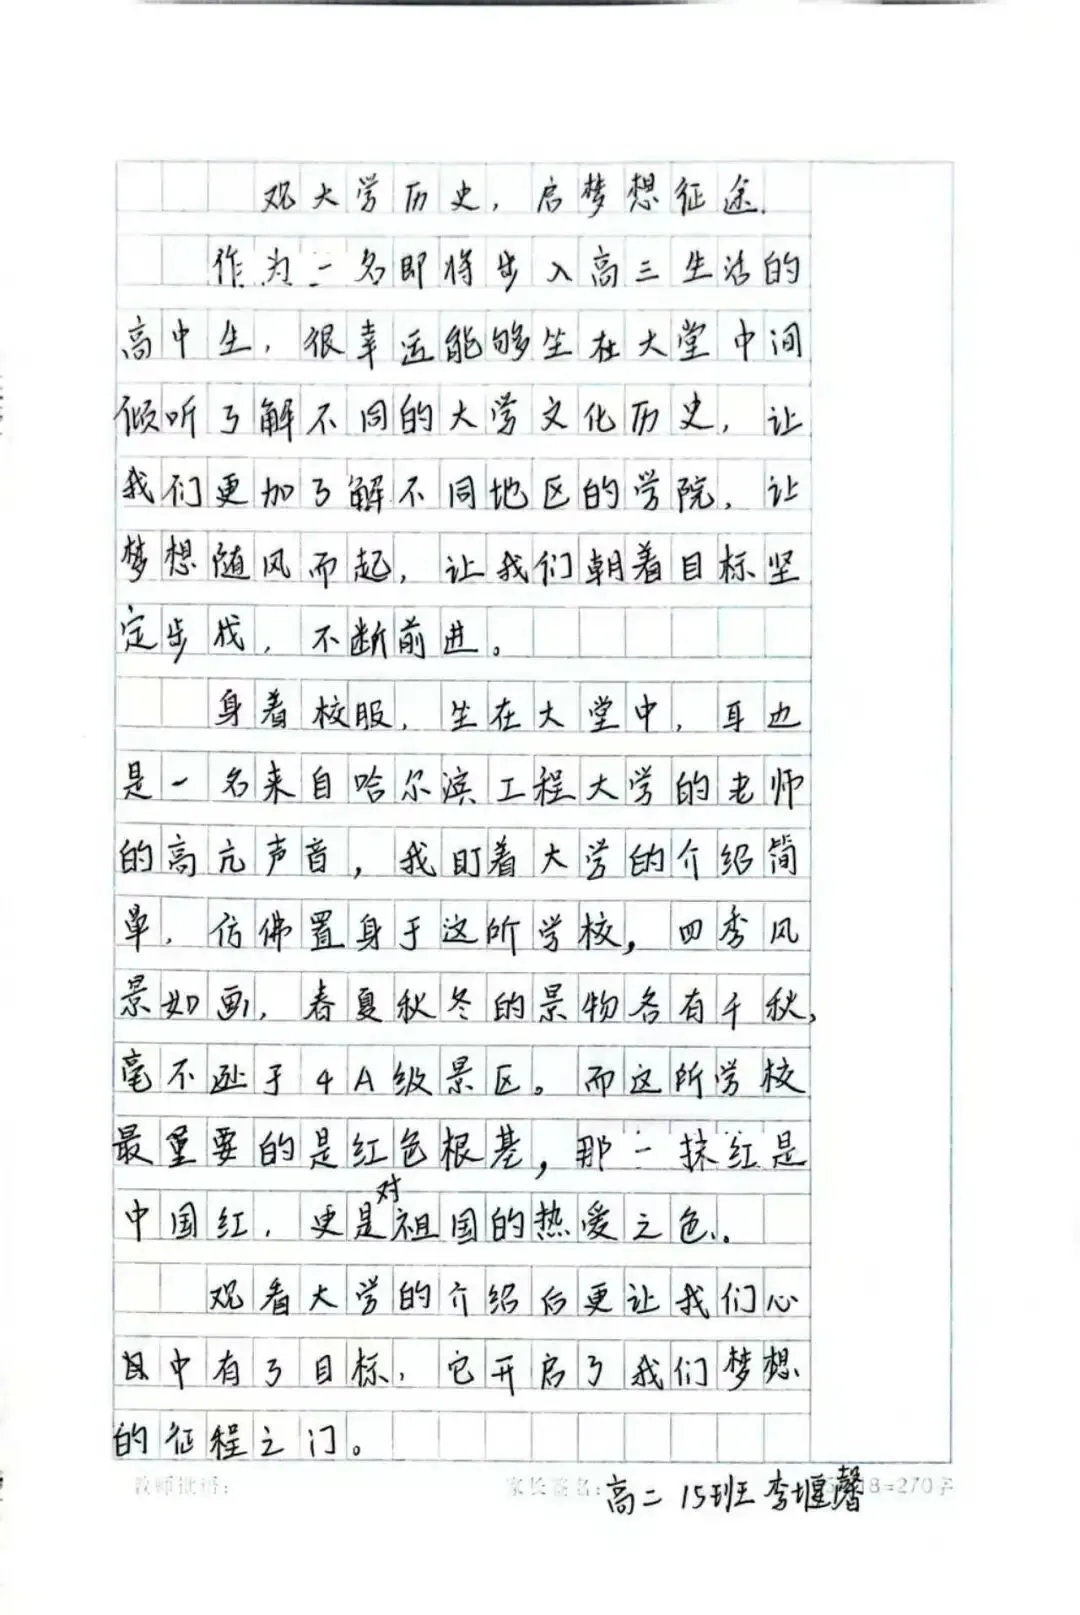 观大学历史，启梦想征途.
作为一名即将步入高三生活的
高中生，很幸运能够坐在大堂中间
倾听了解不同的大学文化历史，让
我们更加了解不同地区的学院，让
梦想随风而起，让我们朝着目标坚
定步伐，不断前进。
身着校服，坐在大堂中，耳边
是一名来自哈尔滨工程大学的老师
的高亢声音，我盯着大学的介绍简
单，仿佛置身于这所学校，四季风
景如画，春夏秋冬的景物各有千秋，
毫不逊于4A级景区。而这所学校
最重要的是红色根基，那一抹红是
中国红，更是对祖国的热爱之色。
观看大学的介绍后更让我们心
中有了目标，它开启了我们梦想
的征程之门。
教师批语： 家长签名： 18=270字
高二15班 李堰馨